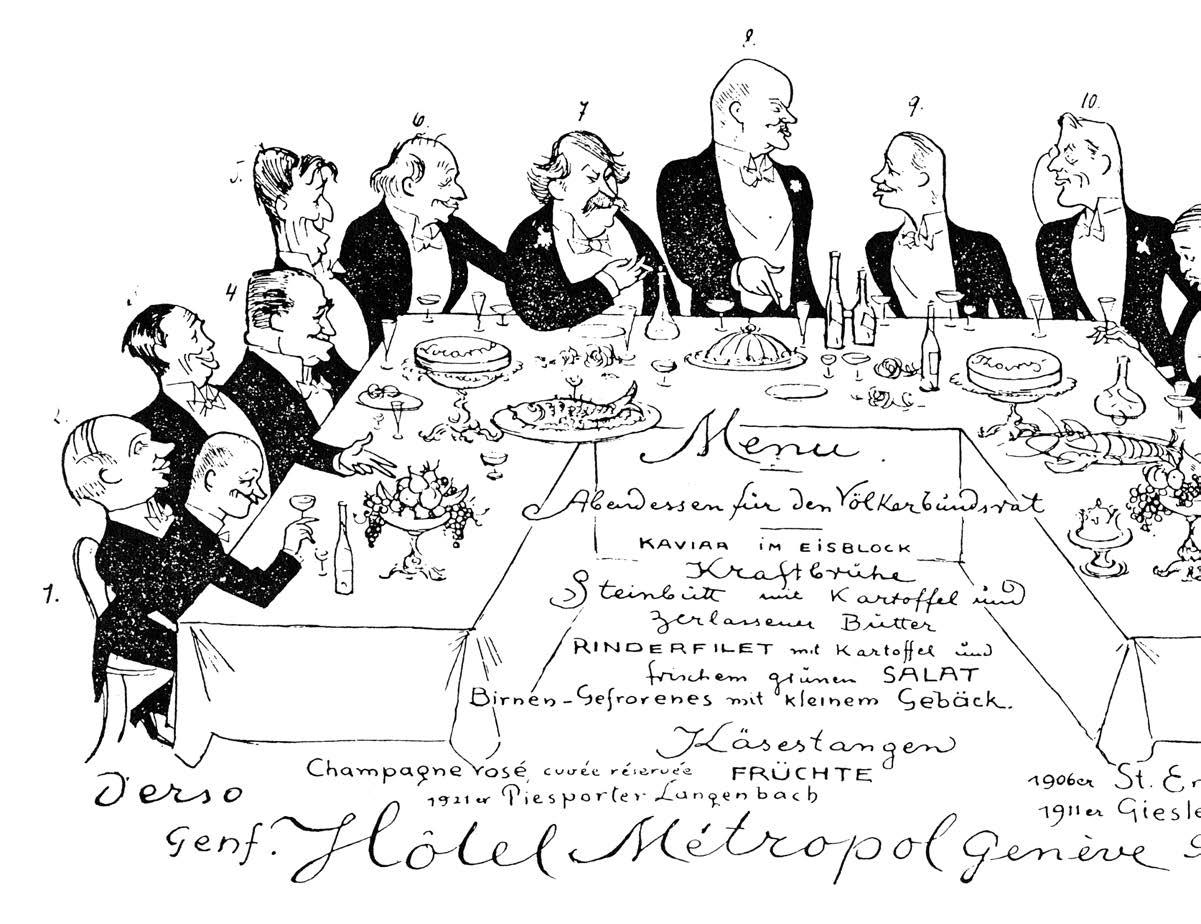 8.
10.
9.
7
6.
5.
4
2.
1.
Menu.
Abendessen für den Völkerbundsrat
KAVIAR IM EISBLOCK
Kraftbrühe
Steinbutt mit Kartoffel und
zerlassener Butter
RINDERFILET mit Kartoffel und
frischem grünen SALAT
Birnen-Gefrorenes mit kleinem Gebäck.
Käsestangen
Champagne rosé, cuvée réservée FRÜCHTE
1906er St. Er
1921er Piesporter Langenbach
1911er Giesle
Derso
Genf. Hôtel Métropol Genève